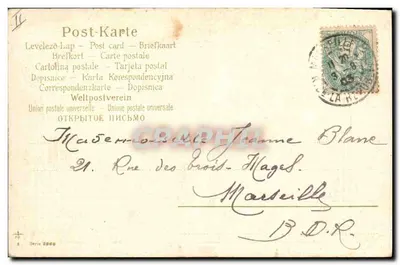 II
Post-Karte
Levelező-Lap - Post card - Briefkaart
Brefkort - Carte postale
Cartolina postale - Tarjeta postal
Dopisnice - Karta Korespondencyjna
Correspondenzkarte - Dopisnica
Weltpostverein
Union postale universelle - Unione postale universale
ОТКРЫТОЕ ПИСЬМО
Mademoiselle Jeanne Blanc
21. Rue des Trois-Mages.
Marseille
B.D.R.
Serie